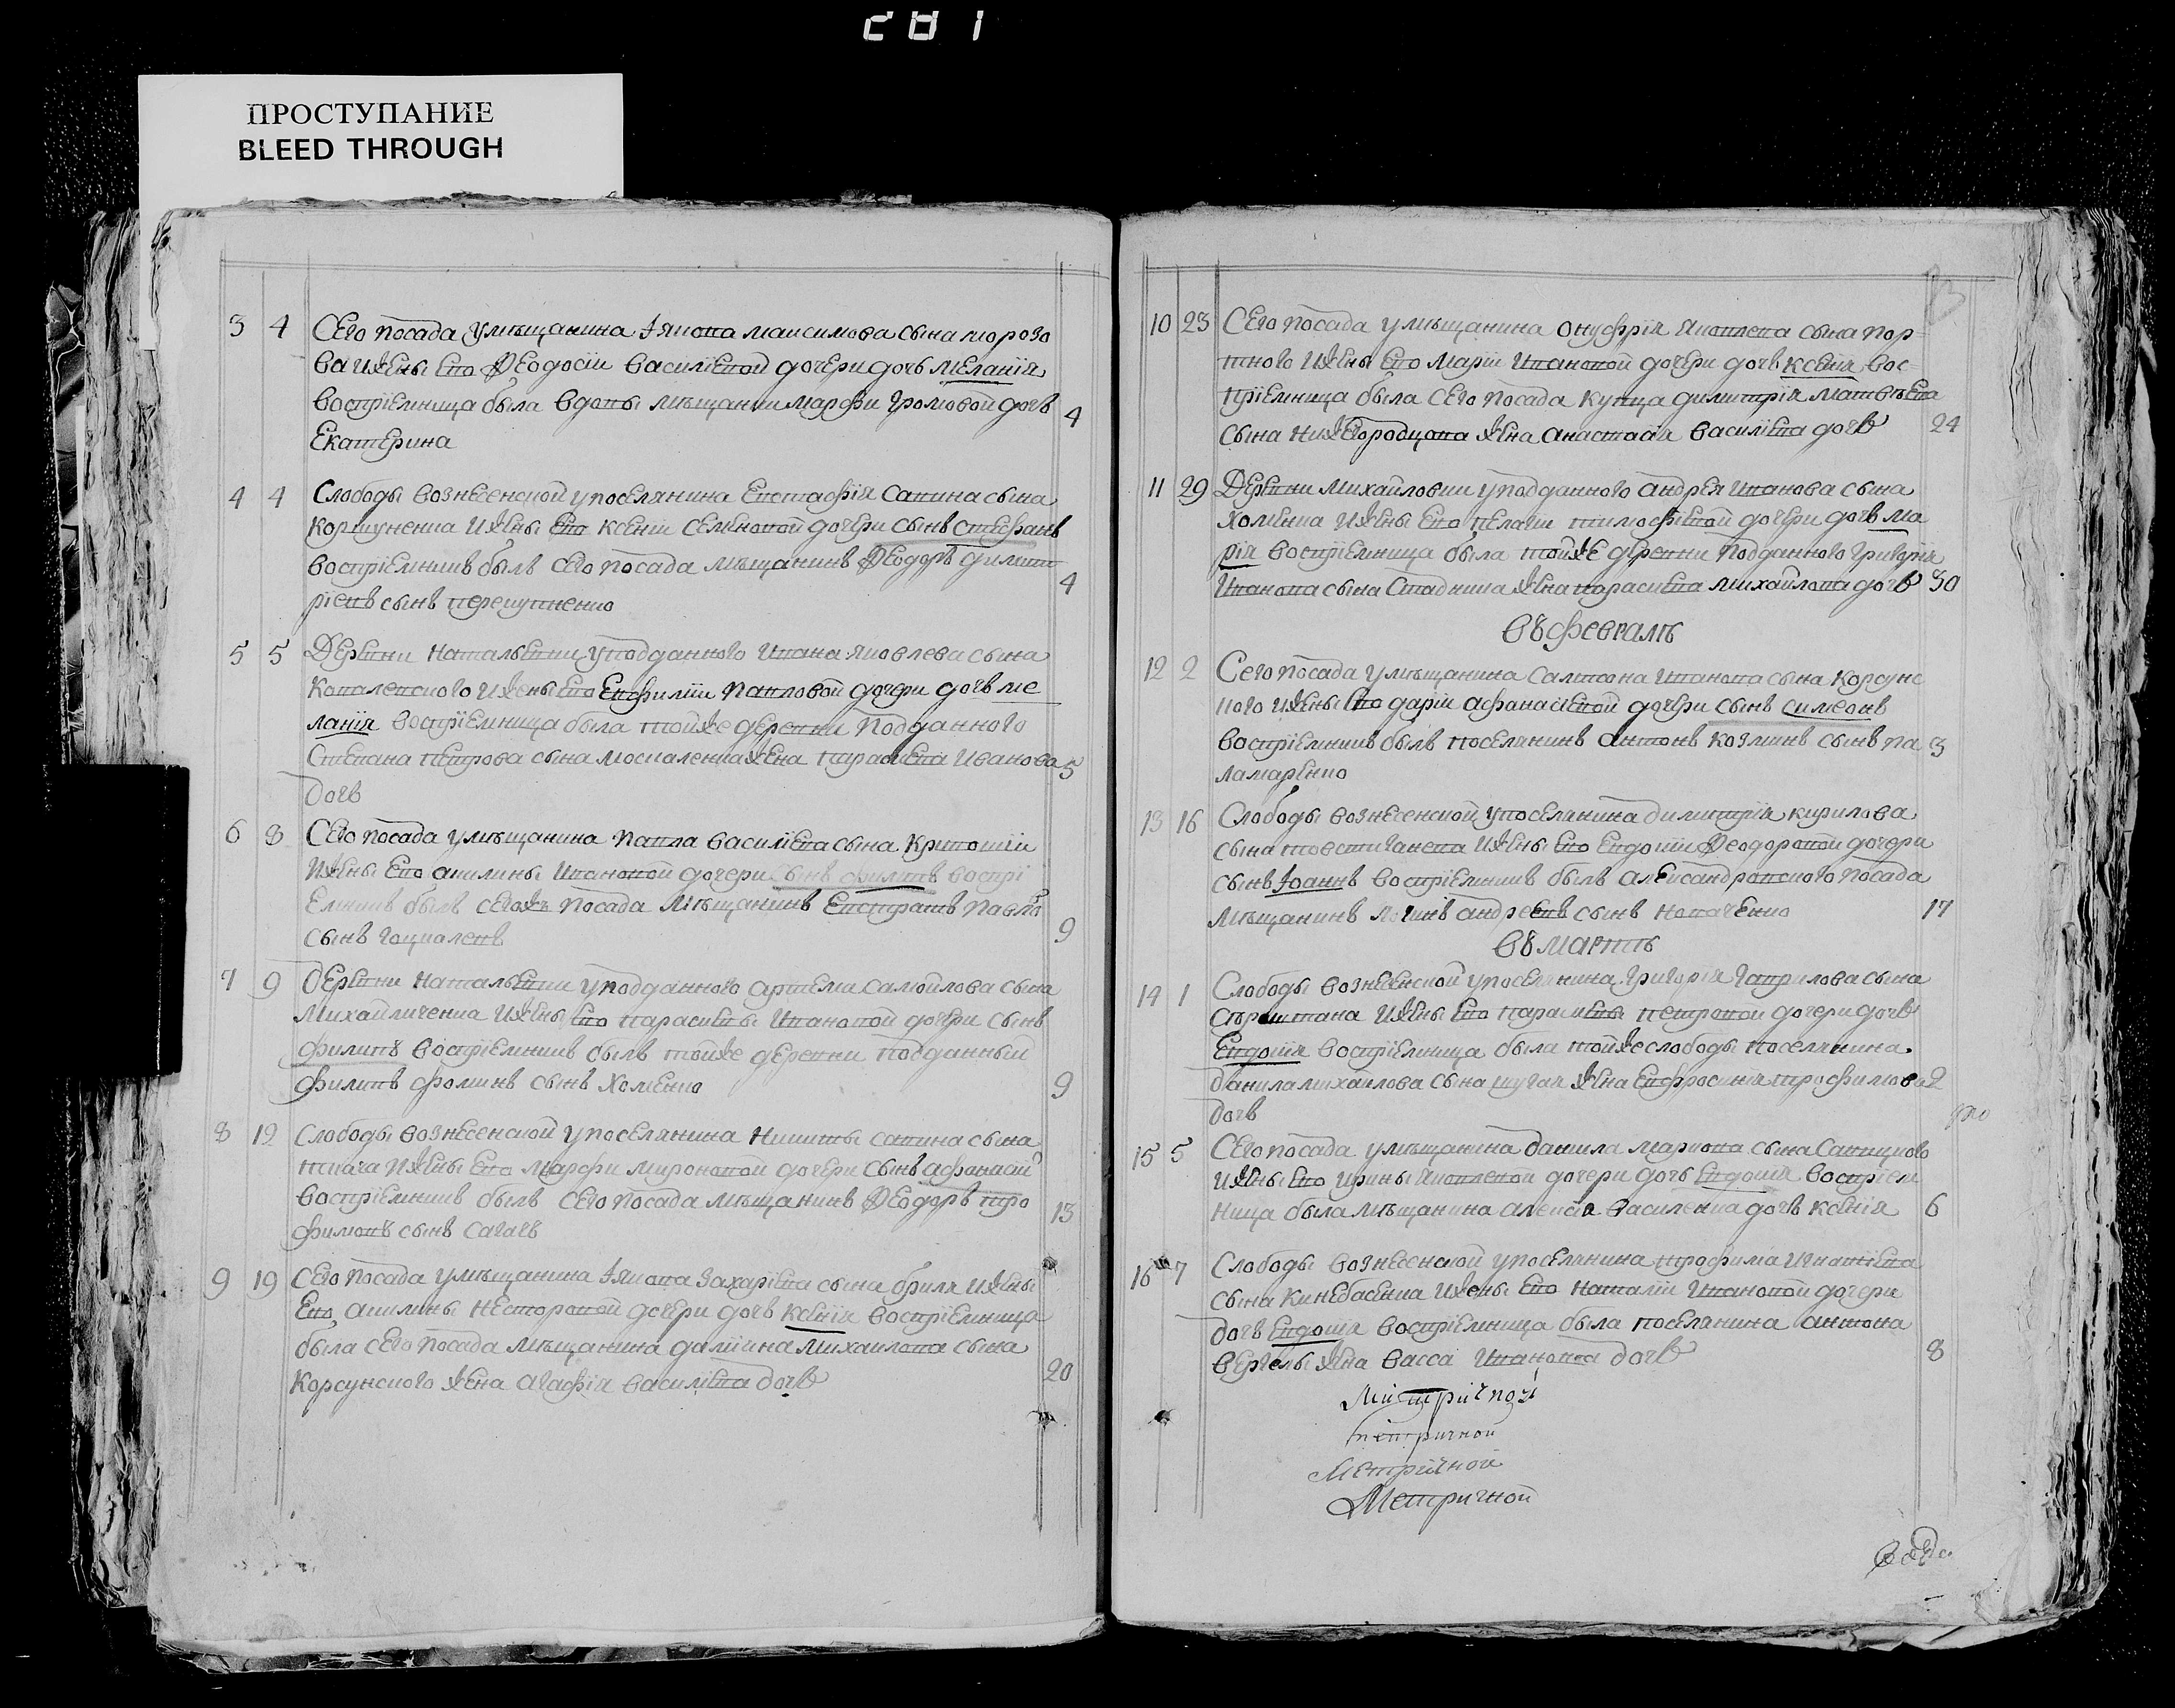 281
ПРОСТУПАНИЕ
BLEED THROUGH
3 4 Сего посада умѣщанина Iякова маѯимова сына морозо
ва ижены его Ѳеодосіи василіевой дочери дочь меланія
воспріемница была вдовы мѣщанки марфи громовой дочь 4
Екатерина
4 4 Слободы вознесенской упоселянина Евстафія савина сына
коршуненка ижены его ксеніи семеновой дочери сынъ стефанъ
воспріемникъ былъ сего посада мѣщанинъ Ѳеодоръ димит
ріевъ сынъ перекупненко 4
5 5 Деревни натальевки уподданного ивана яковлева сына
ковалевского ижены его Евфиміи павловой дочери дочь ме
ланія воспріемница была тойже деревни подданного
Степана петрова сына москаленка жена параскева иванова 5
дочь
6 8 Сего посада умѣщанина павла василіева сына кривошіи
ижены его акилины ивановой дочери сынъ филипъ воспрі
емникъ былъ сегожъ посада мѣщанинъ Евстратъ павло
сынъ гоцкалевъ 9
7 9 деревни натальевки уподданного артема самойлова сына
михайличенка ижены его параскевы ивановой дочери сынъ
филипъ воспріемникъ былъ тойже деревни подданный
филипъ фоминъ сынъ хоменко 9
8 12 Слободы вознесенской упоселянина никиты савина сына
ткача ижены его марфи мироновой дочери сынъ афанасій
воспріемникъ былъ сего посада мѣщанинъ Ѳеодоръ тро 13
фимовъ сынъ сагачъ
9 19 Сего посада умѣщанина Iякова захаріева сына бриля ижены
его акилины несторовой дочери дочь ксенія воспріемница
была сего посада мѣщанина даміяна михаилова сына
корсунского жена агафія василіева дочь 20
10 23 Сего посада умѣщанина онуфрія яковлева сына пор-
тного ижены его маріи ивановой дочери дочь ксенія вос-
пріемница была сего посада купца димитрія матвѣева
сына нижегородцова жена анастасія василіева дочь 24
11 29 Деревни михайловки уподданного андрея иванова сына
хоменка ижены его пелагіи тимофѣевой дочери дочь ма
рія воспріемница была тойже деревни подданного григорія
иванова сына стадника жена параскева михайлова дочь 30
въ февралѣ
12 2 Сего посада умѣщанина самсона иванова сына корсунс
кого ижены его даріи афанасіевой дочери сынъ симеонъ
воспріемникъ былъ поселянинъ антонъ козминъ сынъ па 3
ламаренко
13 16 Слободы вознесенской упоселянина димитрія кирилова
сына товстиганева ижены его Евдокіи Ѳеодоровой дочери
сынъ Iоаннъ воспріемникъ былъ александровского посада
мѣщанинъ логинъ андреевъ сынъ 17
въ мартѣ
14 1 Слободы вознесенской упоселянина григорія гаврилова сына
ижены его параскевы петровой дочери дочь
Евдокія воспріемница была тойже слободы поселянина
данила михаилова сына шугая жена Евфросинія трофимова 2
дочь
15 5 Сего посада умѣщанина данила маркова сына савицкого
ижены его ирины яковлевой дочери дочь Евдокія воспріем
ница была мѣщанина алексія василенка дочь ксенія 6
16 7 Слободы вознесенской упоселянина трофима игнатіева
сына кинебасенка ижены его наталіи ивановой дочери
дочь Евдокія воспріемница была поселянина антона
вергелы жена васса иванова дочь 8
Метричной
Метричной
Метричной